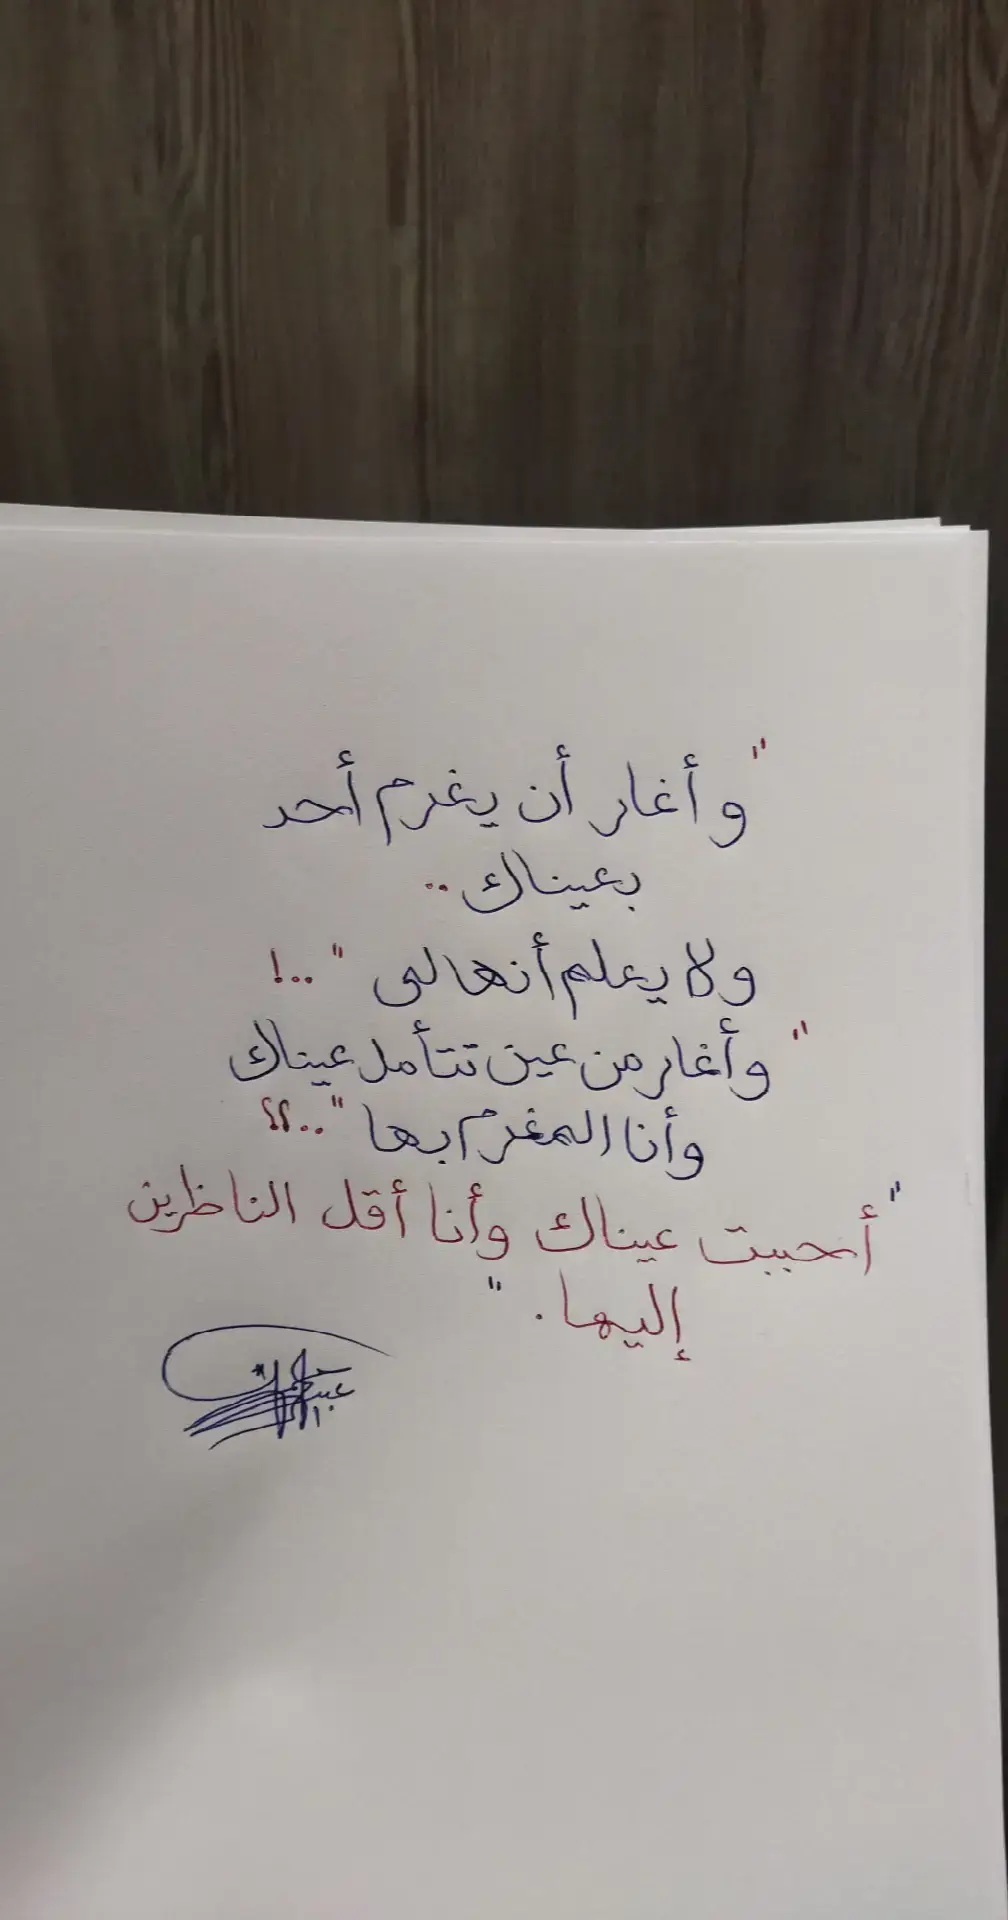 "وأغار أن يغرم أحد
بعيناك ..
ولا يعلم أنها لي " ..!
"وأغار من عين تتأمل عيناك
وأنا المغرم بها " ..؟؟
"أحببت عيناك وأنا أقل الناظرين
إليها . "